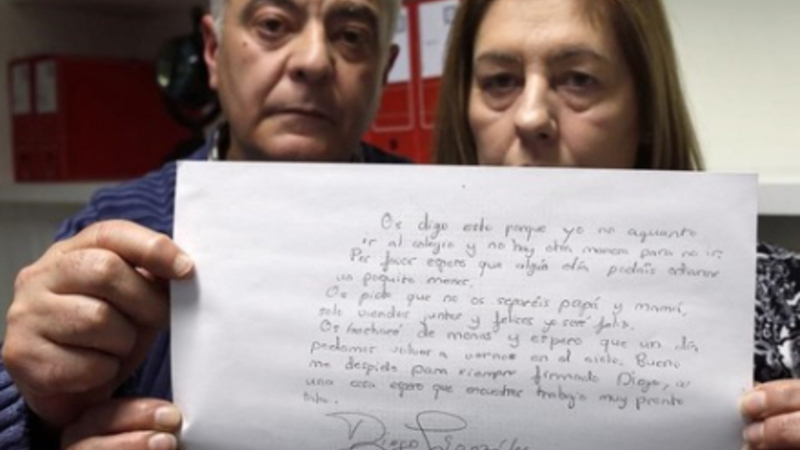 Os digo esto porque yo no aguanto
ir al colegio y no hay otra manera para no ir.
Por favor espero que algún día podáis odiarme
un poquito menos.
Os pido que no os separéis papá y mamá,
solo viendos juntos y felices yo seré feliz.
Os echaré de menos y espero que un día
podamos volver a vernos en el cielo. Bueno
me despido para siempre firmado Diego, a
una cosa espero que encuentres trabajo muy pronto
Diego González